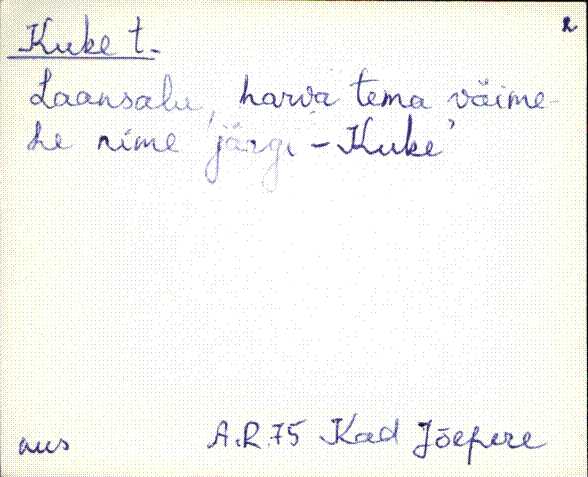 2
Kuke t.
Laansalu, harva tema väime-
he nime järgi - Kuke'
mus A.R.75 Kad Jõepere